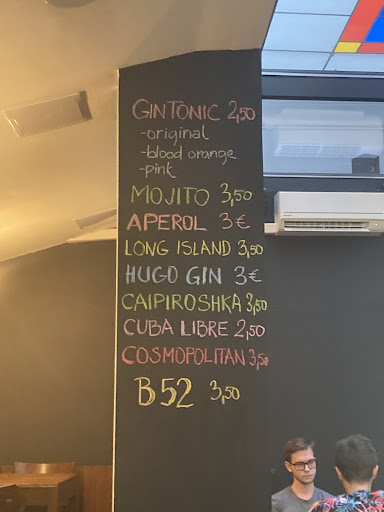 GINTONIC 2,50
-original
-blood orange
-pink
MOJITO 3,50
APEROL 3€
LONG ISLAND 3,50
HUGO GIN 3€
CAIPIROSHKA 3,50
CUBA LIBRE 2,50
COSMOPOLITAN 3,50
B52 3,50